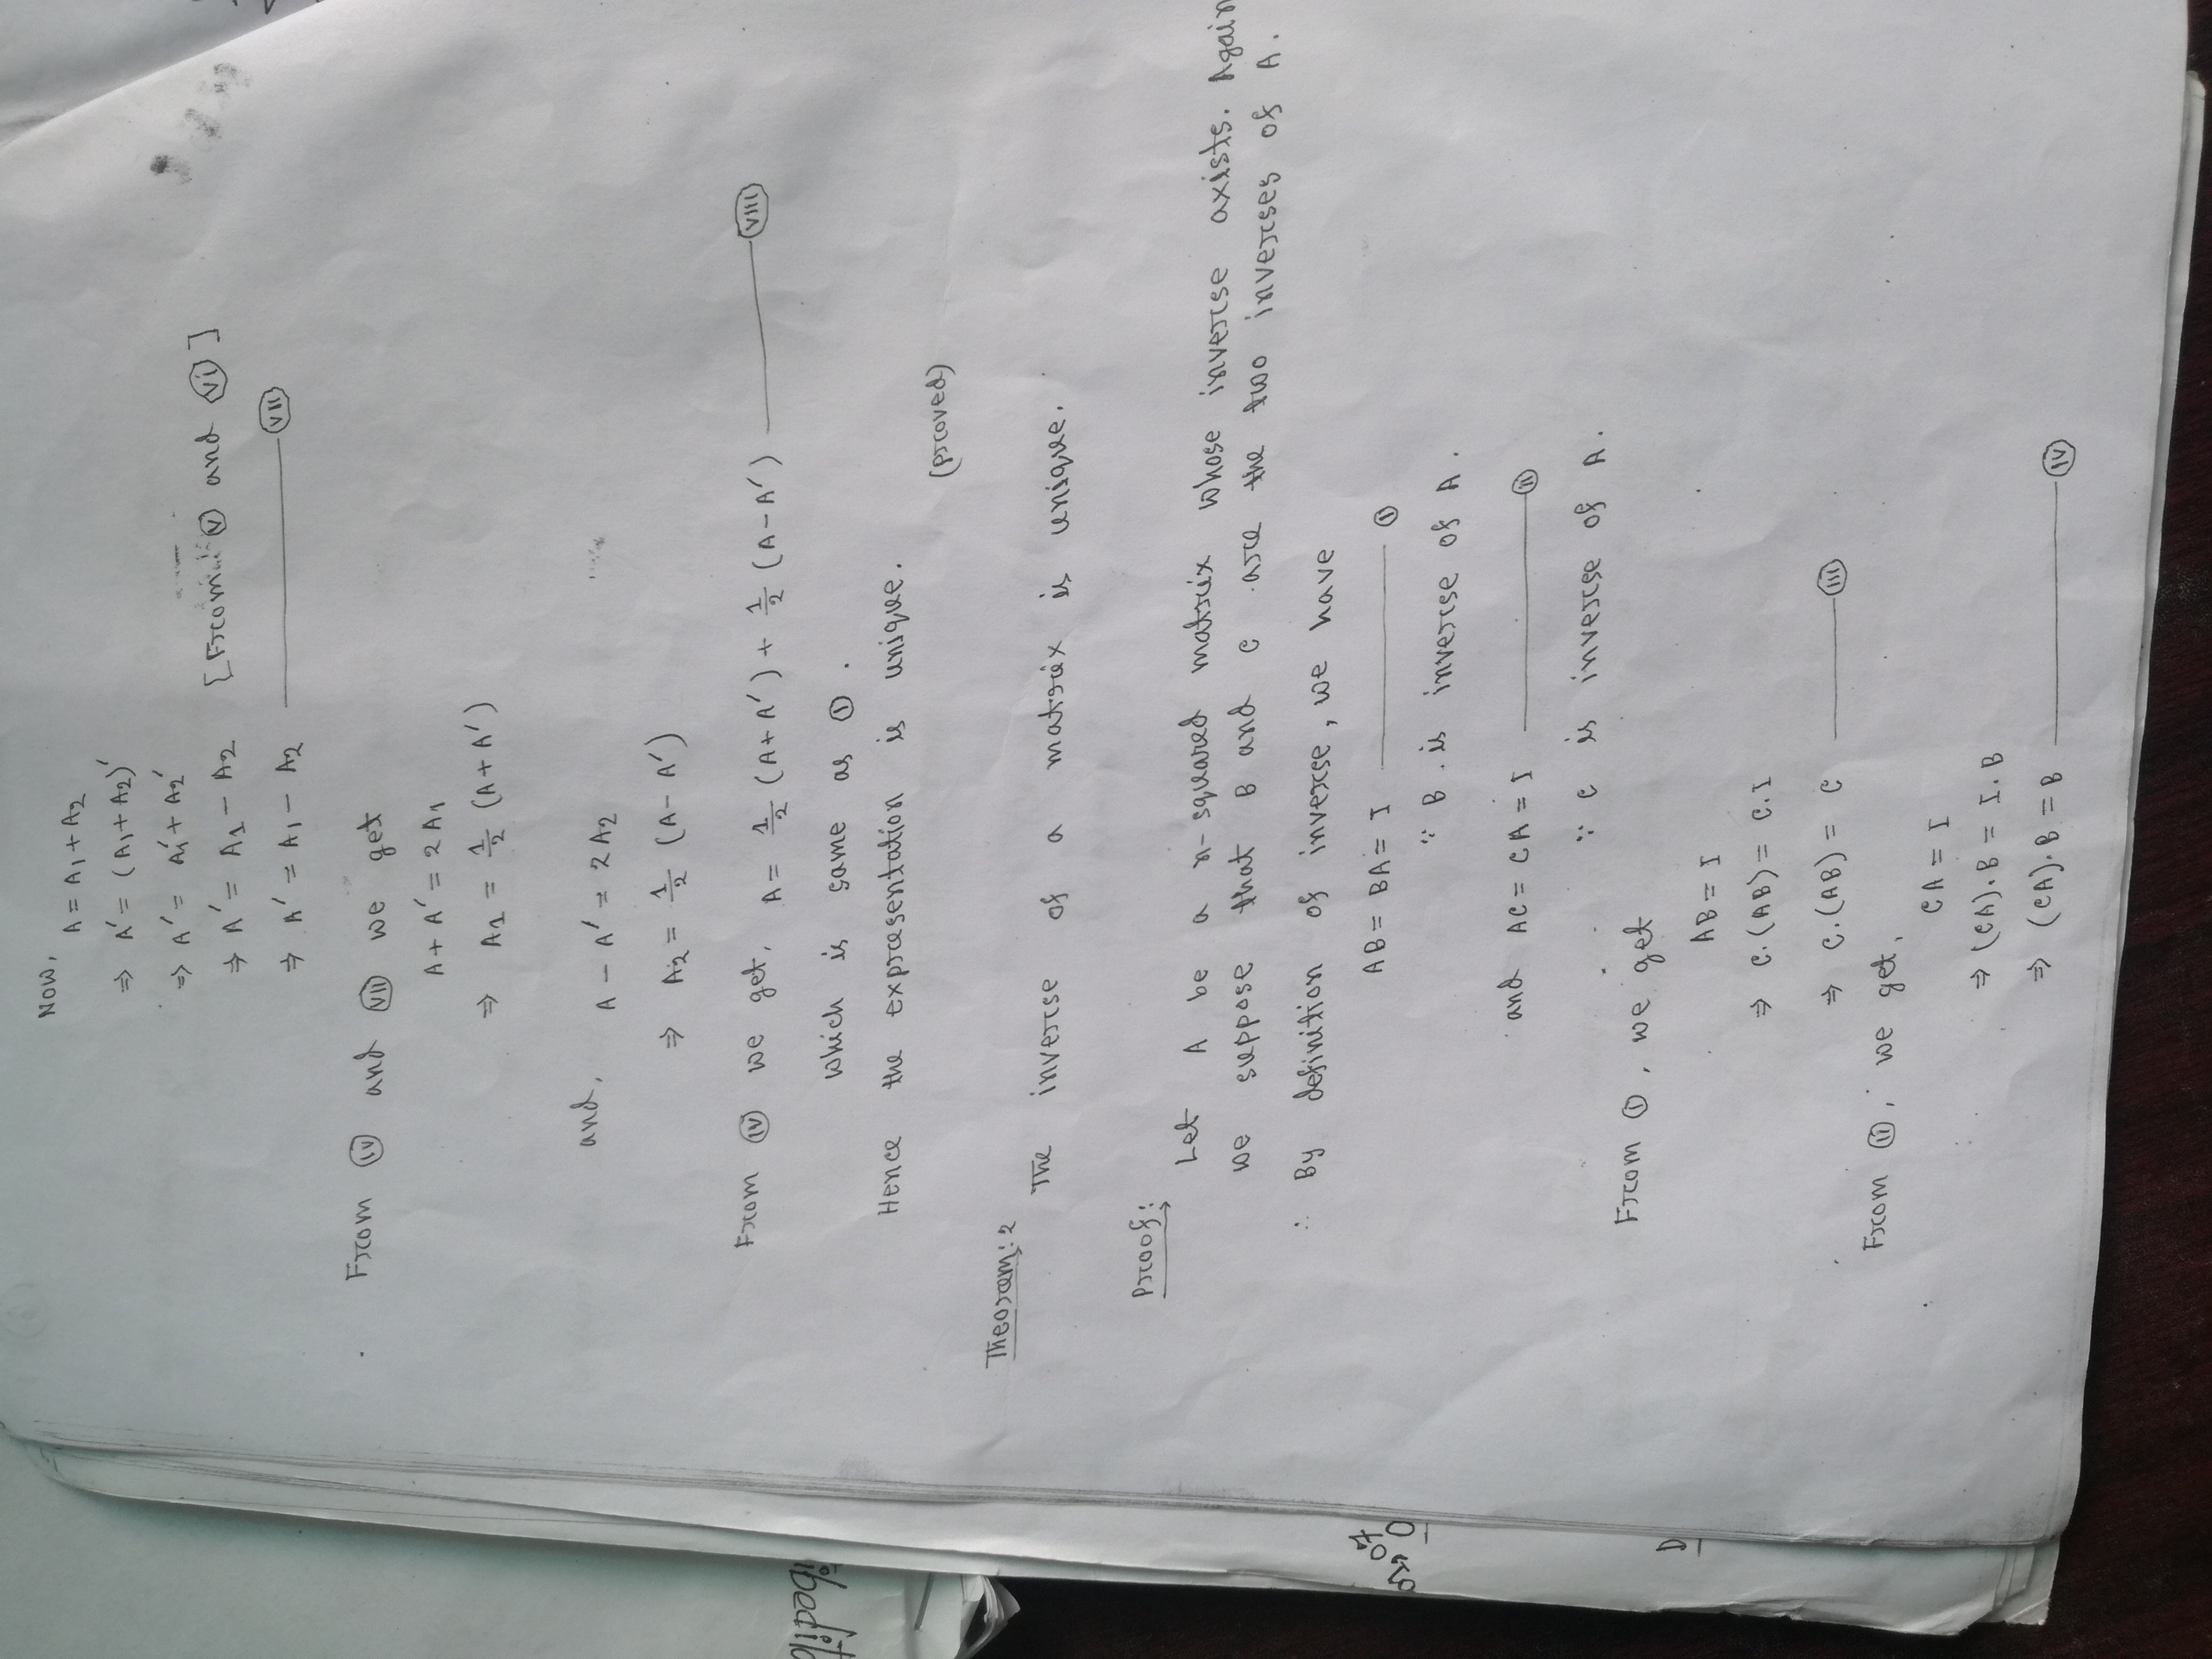 Now,
A = A₁ + A₂
⇒ A′ = (A₁ + A₂)′
⇒ A′ = A₁′ + A₂′
⇒ A′ = A₁ − A₂ [From Ⓥ and ⓥⓘ]
⇒ A′ = A₁ − A₂ ——— (VII)
From (IV) and (VII) we get
A + A′ = 2A₁
⇒ A₁ = 1/2 (A + A′)
and,
A − A′ = 2A₂
⇒ A₂ = 1/2 (A − A′)
From (IV) we get, A = 1/2 (A + A′) + 1/2 (A − A′) ——— (VIII)
which is same as (I).
Hence the expresentation is unique.
(proved)
Theoram: 2
The inverse of a matrix is unique.
Proof:
Let A be a n-squared matrix whose inverse axists. Again
we suppose that B and C are the two inverses of A.
∴ By definition of inverse, we have
AB = BA = I ——— (I)
∵ B is inverse of A.
and AC = CA = I ——— (II)
∵ C is inverse of A.
From (I), we get
AB = I
⇒ C.(AB) = C.I
⇒ C.(AB) = C ——— (III)
From (II), we get,
CA = I
⇒ (CA).B = I.B
⇒ (CA).B = B ——— (IV)